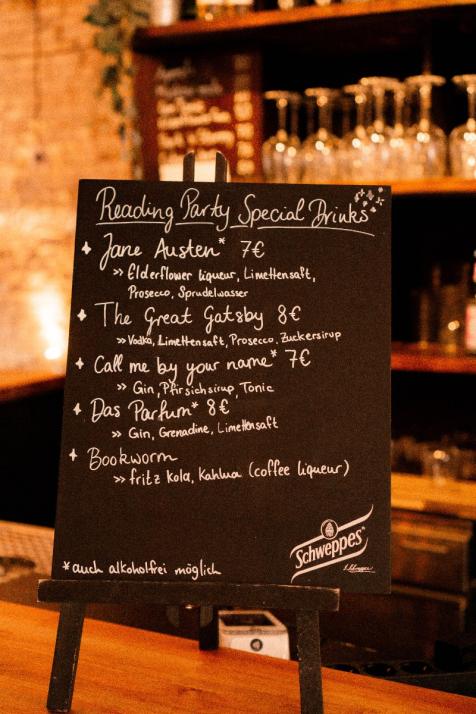 Reading Party Special Drinks
Jane Austen* 7€
>> Elderflower liqueur, Limettensaft,
Prosecco, Sprudelwasser
The Great Gatsby 8€
>> Vodka, Limettensaft, Prosecco, Zuckersirup
Call me by your name* 7€
>> Gin, Pfirsichsirup, Tonic
Das Parfum* 8€
>> Gin, Grenadine, Limettensaft
Bookworm
>> fritz Kola, Kahlua (coffee liqueur)
Schweppes
*auch alkoholfrei möglich